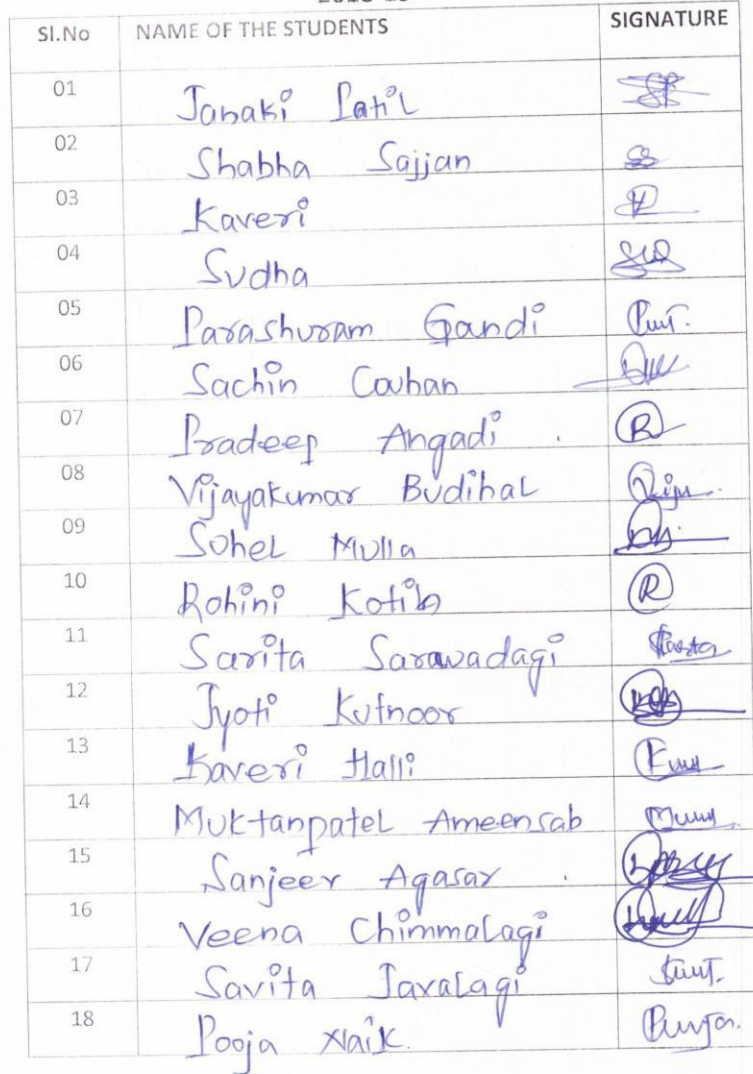 Sl.No NAME OF THE STUDENTS SIGNATURE
01 Janaki Patil
02 Shabha Sajjan
03 Kaveri
04 Sudha
05 Parashuram Gandi
06 Sachin Couhan
07 Pradeep Angadi
08 Vijayakumar Budihal
09 Sohel Mulla
10 Rohini
11 Sarita Sarawadagi
12 Jyoti Kutnoor
13 Kaveri Halli
14 Muktanpatel Ameensab
15 Sanjeer Agasar
16 Veena Chimmalagi
17 Savita Javalagi
18 Pooja Naik.